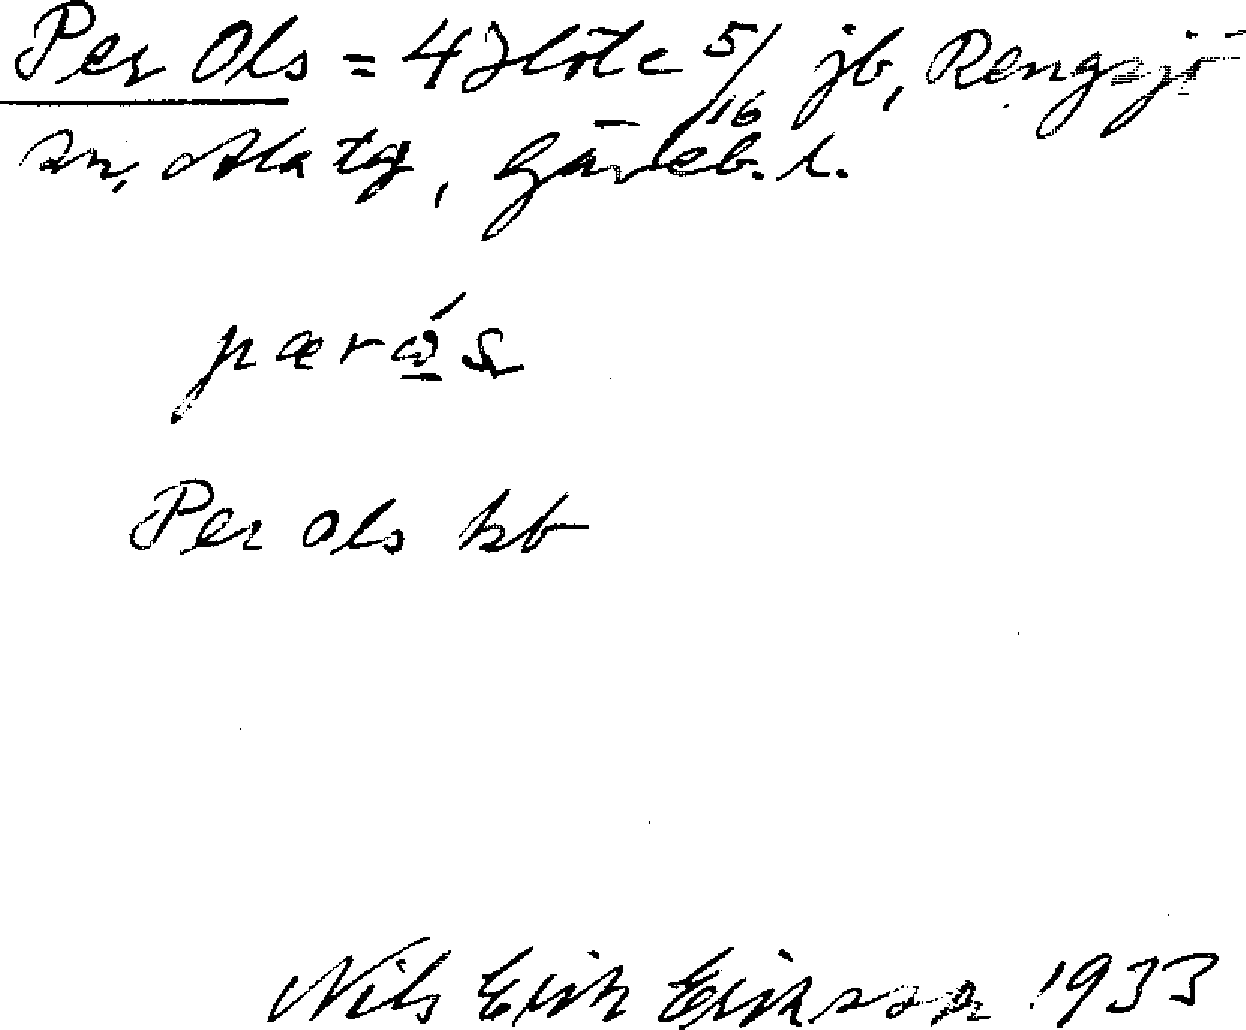 Per Ols = 4 Höle 5/16 jb, Rengsjö
sn, Ala tg, Gävleb. l.
pæros
Per Ols kb
Nils Erik Eriksson 1933